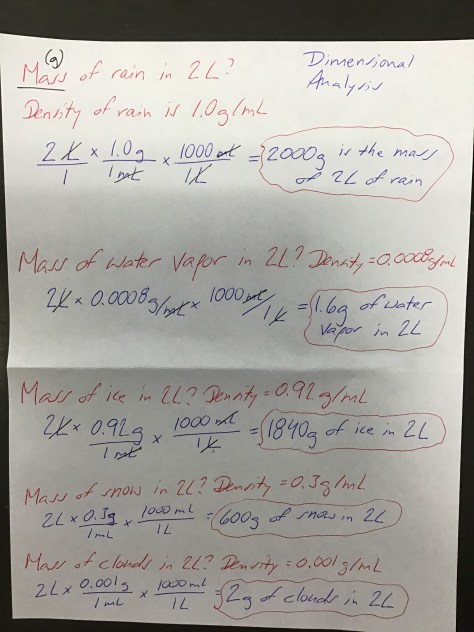 (g)
Mass of rain in 2L?
Dimensional
Analysis
Density of rain is 1.0g/mL
2L/1 × 1.0g/1mL × 1000mL/1L = 2000g is the mass
of 2L of rain
Mass of water vapor in 2L? Density = 0.0008g/mL
2L × 0.0008g/mL × 1000mL/1L = 1.6g of water
vapor in 2L
Mass of ice in 2L? Density = 0.92 g/mL
2L × 0.92g/1mL × 1000mL/1L = 1840g of ice in 2L
Mass of snow in 2L? Density = 0.3g/mL
2L × 0.3g/1mL × 1000mL/1L = 600g of snow in 2L
Mass of clouds in 2L? Density = 0.001g/mL
2L × 0.001g/1mL × 1000mL/1L = 2g of clouds in 2L